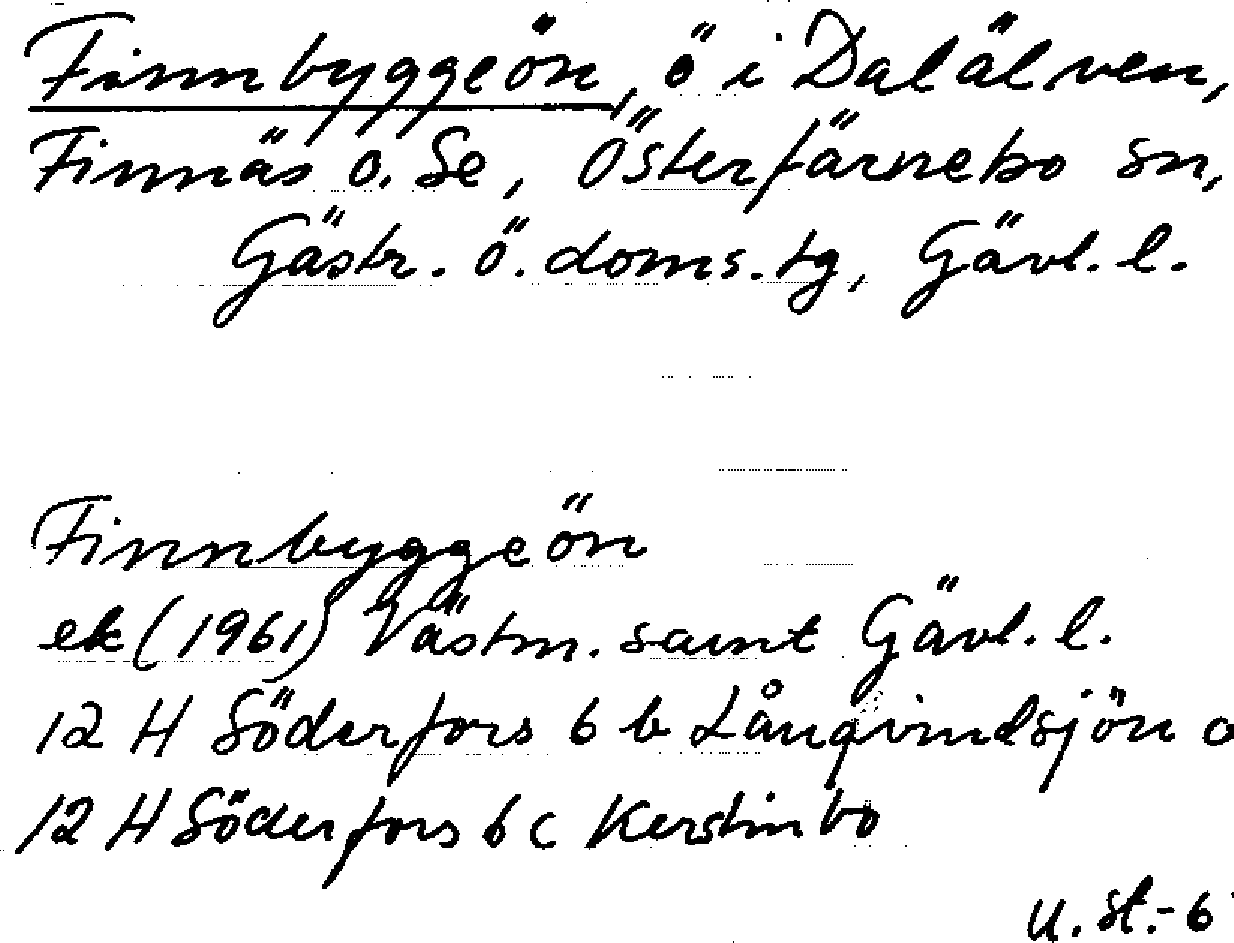 Finnbyggeön, ö i Dalälven,
Finnäs o. Se, Österfärnebo sn,
Gästr. ö. doms.tg, Gävl. l.
Finnbyggeön
ek (1961) Västm. samt Gävl. l.
12 H Söderfors 6 b Långvindsjön o
12 H Söderfors 6 c Kerstinbo
U. St.-6